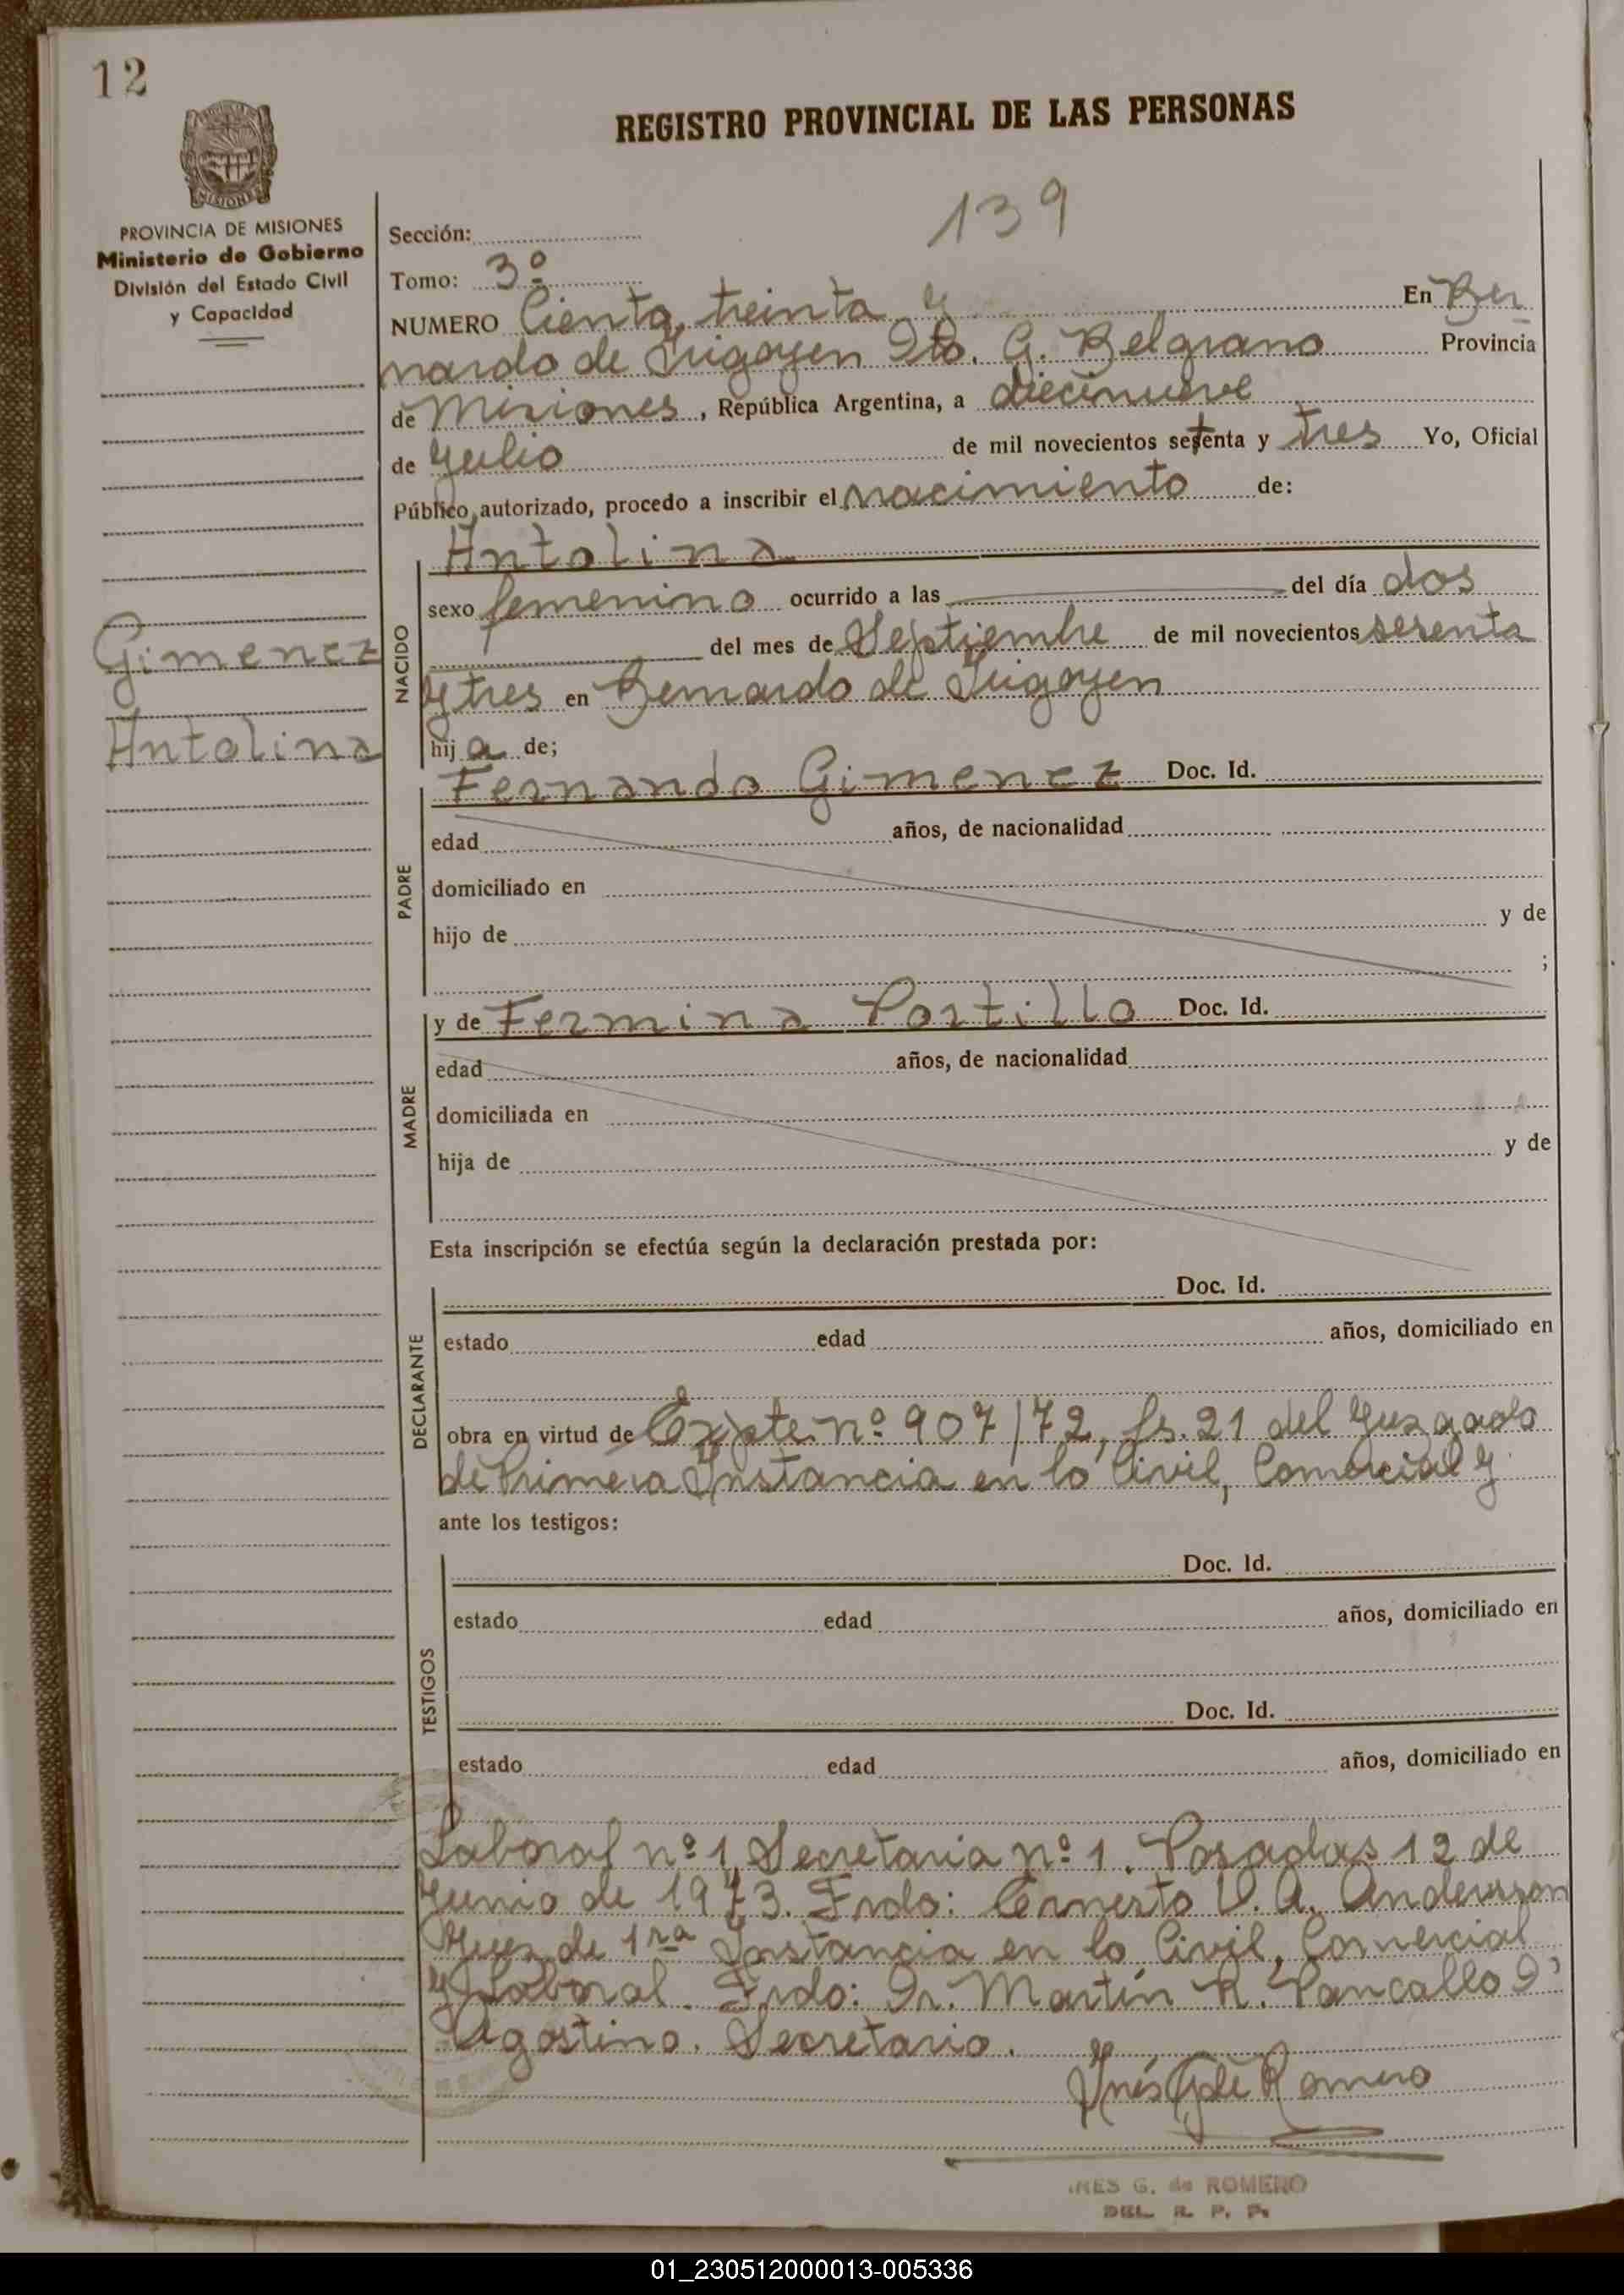 12
REGISTRO PROVINCIAL DE LAS PERSONAS
MISIONES
PROVINCIA DE MISIONES
Ministerio de Gobierno
División del Estado Civil
y Capacidad
139
Sección:
Tomo: 3º
NUMERO Ciento, treinta y En Ber
nardo de Irigoyen Dto. G. Belgrano Provincia
de Misiones, República Argentina, a diecinueve
de Julio de mil novecientos setenta y tres Yo, Oficial
Público autorizado, procedo a inscribir el nacimiento de:
Gimenez
Antolina
NACIDO
Antolina
sexo femenino ocurrido a las del día dos
del mes de Septiembre de mil novecientos sesenta
y tres en Bernardo de Irigoyen
hija de;
PADRE
Fernando Gimenez Doc. Id.
edad años, de nacionalidad
domiciliado en
hijo de y de
;
MADRE
y de Fermina Portillo Doc. Id.
edad años, de nacionalidad
domiciliada en
hija de y de
Esta inscripción se efectúa según la declaración prestada por:
DECLARANTE
Doc. Id.
estado edad años, domiciliado en
obra en virtud de Expte. nº 907/72, fs. 21 del Juzgado
de Primera Instancia en lo Civil, Comercial y
ante los testigos:
TESTIGOS
Doc. Id.
estado edad años, domiciliado en
Doc. Id.
estado edad años, domiciliado en
Laboral nº 1, Secretaria nº 1. Posadas 12 de
Junio de 1973. Frdo: Ernesto V. A. Andersson
Juez de 1ra Instancia en lo Civil, Comercial
y Laboral. Frdo: Dr. Martín R. Pancallo D'
Agostino. Secretario.
Inés G de Romero
INES G. de ROMERO
DEL. R. P. P.
01_230512000013-005336